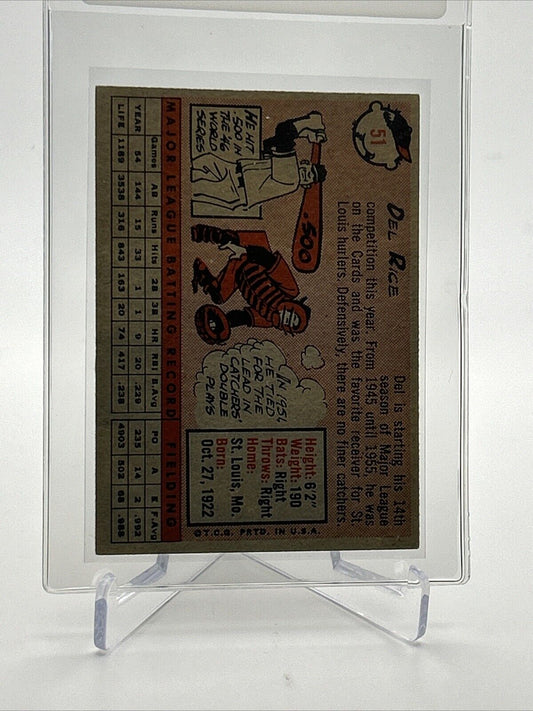 51
DEL RICE
Del is starting his 14th
season of Major League
competition this year. From 1945 until 1955, he was
on the Cards and was the favorite receiver for St.
Louis hurlers. Defensively, there are no finer catchers.
HE HIT
.500 IN
THE '46
WORLD
SERIES
.500
IN 1954
HE TIED
FOR THE
LEAD IN
CATCHERS'
DOUBLE
PLAYS
Height: 6'2"
Weight: 190
Bats: Right
Throws: Right
Home:
St. Louis, Mo.
Born:
Oct. 27, 1922
©T.C.G. PRTD. IN U.S.A.
MAJOR LEAGUE BATTING RECORD FIELDING
Games AB Runs Hits 2B 3B HR RBI B.Avg PO A E F.Avg
YEAR 54 144 15 33 1 1 9 20 .229 235 14 2 .992
LIFE 1189 3538 318 843 163 20 74 417 .238 4903 502 68 .988